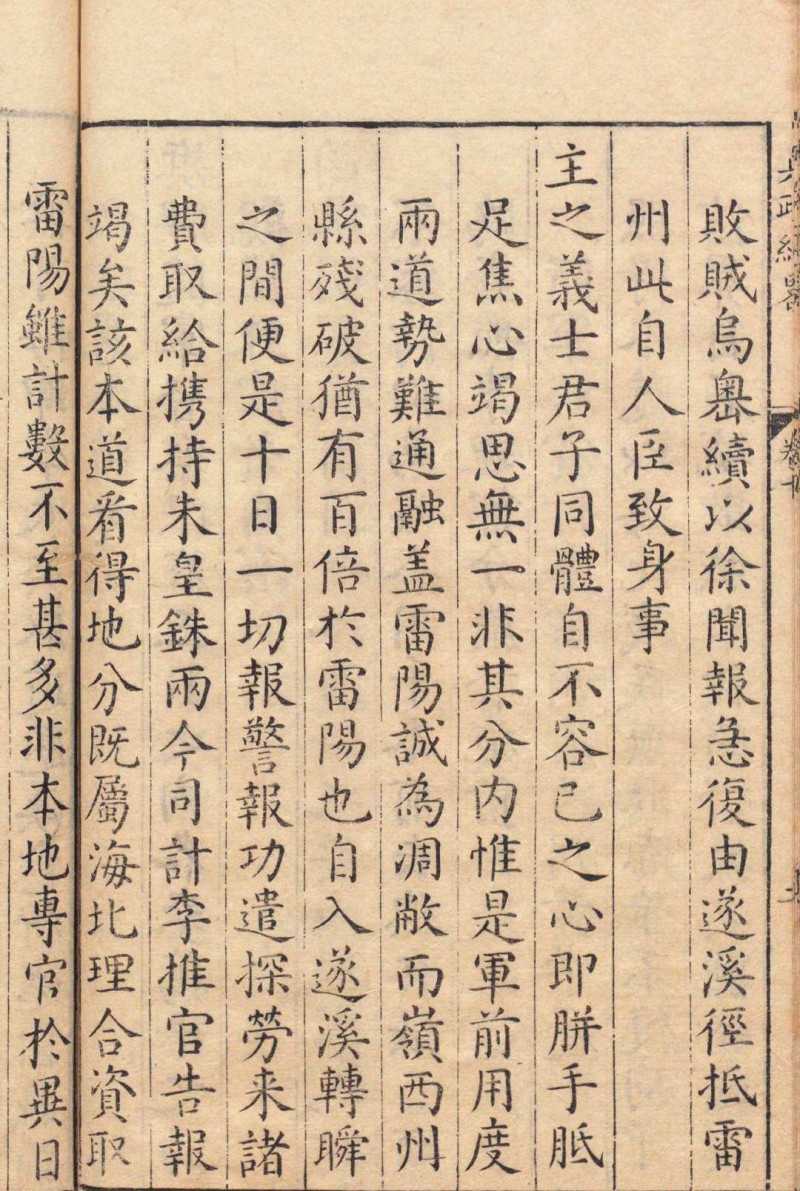 敗賊烏㠗續以徐聞報急復由遂溪徑抵雷
州此自人臣致身事
主之義士君子同體自不容已之心即胼手胝
足焦心竭思無一非其分内惟是軍前用度
兩道勢難通融盖雷陽誠為凋敝而嶺西州
縣殘破猶有百倍於雷陽也自入遂溪轉瞬
之間便是十日一切報警報功遣探勞来諸
費取給携持未皇銖兩今司計李推官告報
竭矣該本道看得地分既屬海北理合資取
雷陽雖計數不至甚多非本地專官於異日